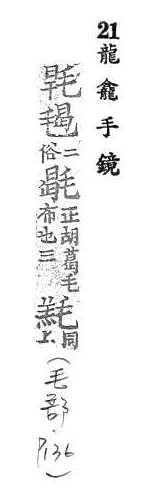 21 龍龕手鏡
毼二俗
正胡葛毛
布也三
同上
(毛部.P136)